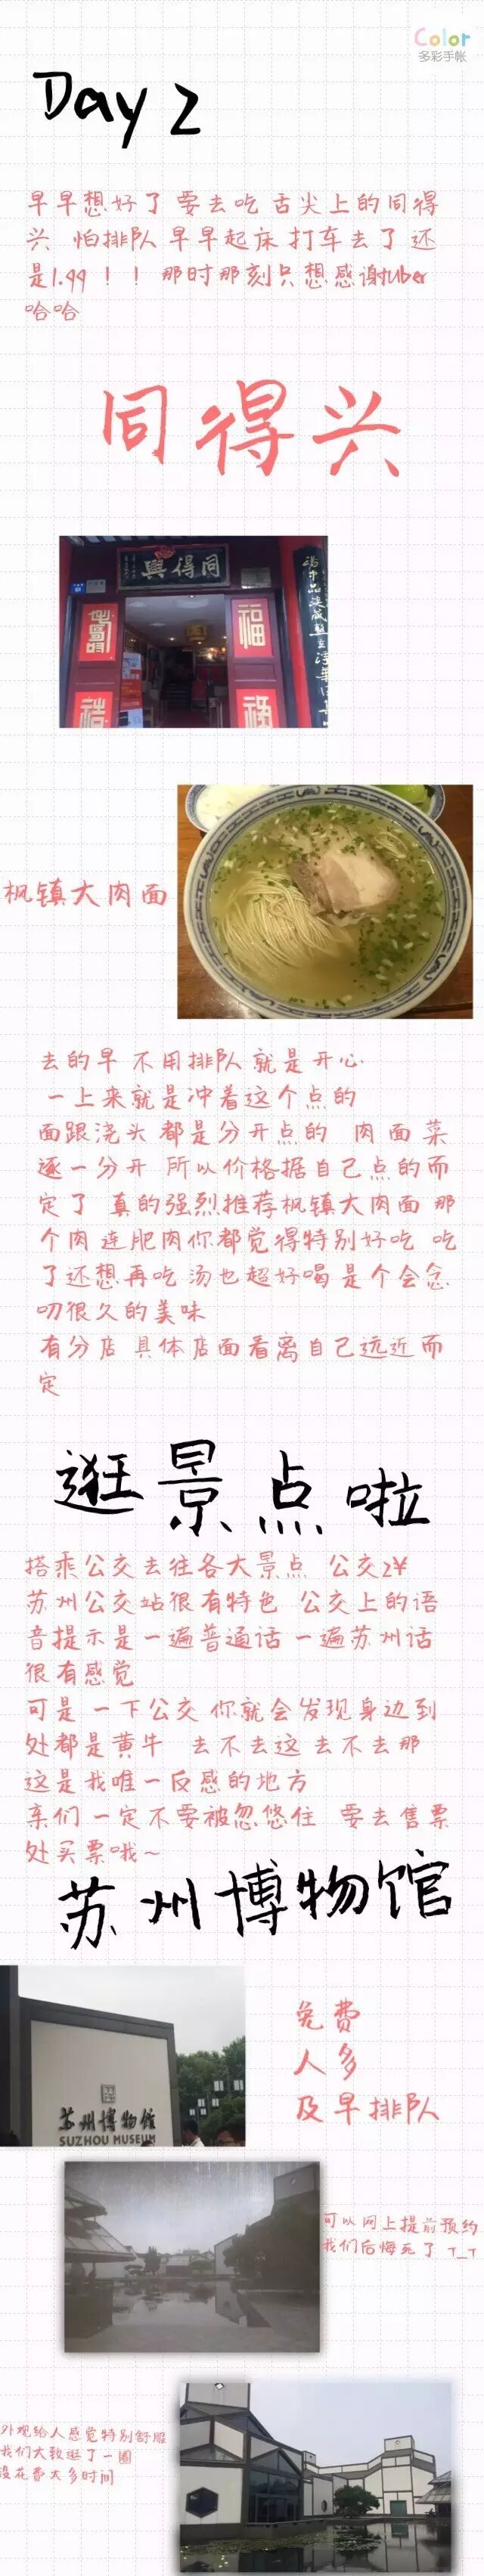 Color
多彩手帐
Day 2
早早想好了 要去吃 舌尖上的同得
兴 怕排队 早早起床 打车去了 还
是1.99 ！！ 那时那刻只想感谢uber
哈哈
同得兴
興得同
福
枫镇大肉面
去的早 不用排队 就是开心
一上来就是冲着这个点的
面跟浇头 都是分开点的 肉 面 菜
逐一分开 所以价格据自己点的而
定了 真的强烈推荐枫镇大肉面 那
个肉 连肥肉你都觉得特别好吃 吃
了还想再吃 汤也超好喝 是个会念
叨很久的美味
有分店 具体店面看离自己远近而
定
逛景点啦
搭乘公交去往各大景点 公交2¥
苏州公交站很有特色 公交上的语
音提示是一遍普通话 一遍苏州话
很有感觉
可是 一下公交 你就会发现身边到
处都是黄牛 去不去这 去不去那
这是我唯一反感的地方
亲们 一定不要被忽悠住 要去售票
处买票哦~
苏州博物馆
苏州博物馆
SUZHOU MUSEUM
免费
人多
及早排队
可以网上提前预约
我们后悔死了 T_T
外观给人感觉特别舒服
我们大致逛了一圈
没花费太多时间